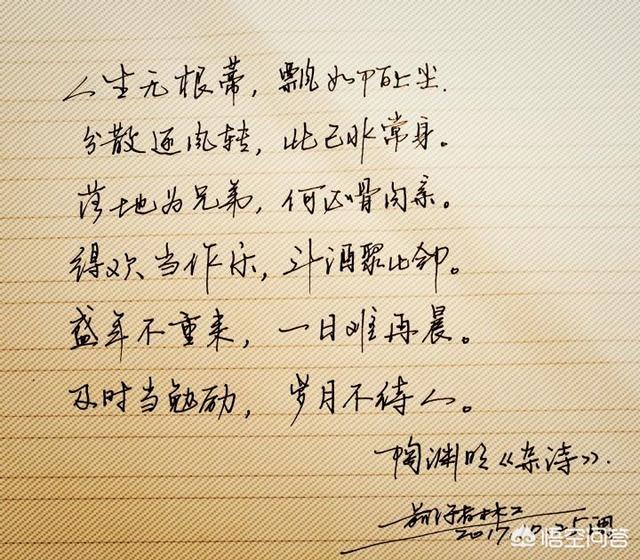 人生无根蒂，飘如陌上尘.
分散逐风转，此已非常身。
落地为兄弟，何必骨肉亲。
得欢当作乐，斗酒聚比邻。
盛年不重来，一日难再晨。
及时当勉励，岁月不待人。
陶渊明《杂诗》.
2017.
悟空问答